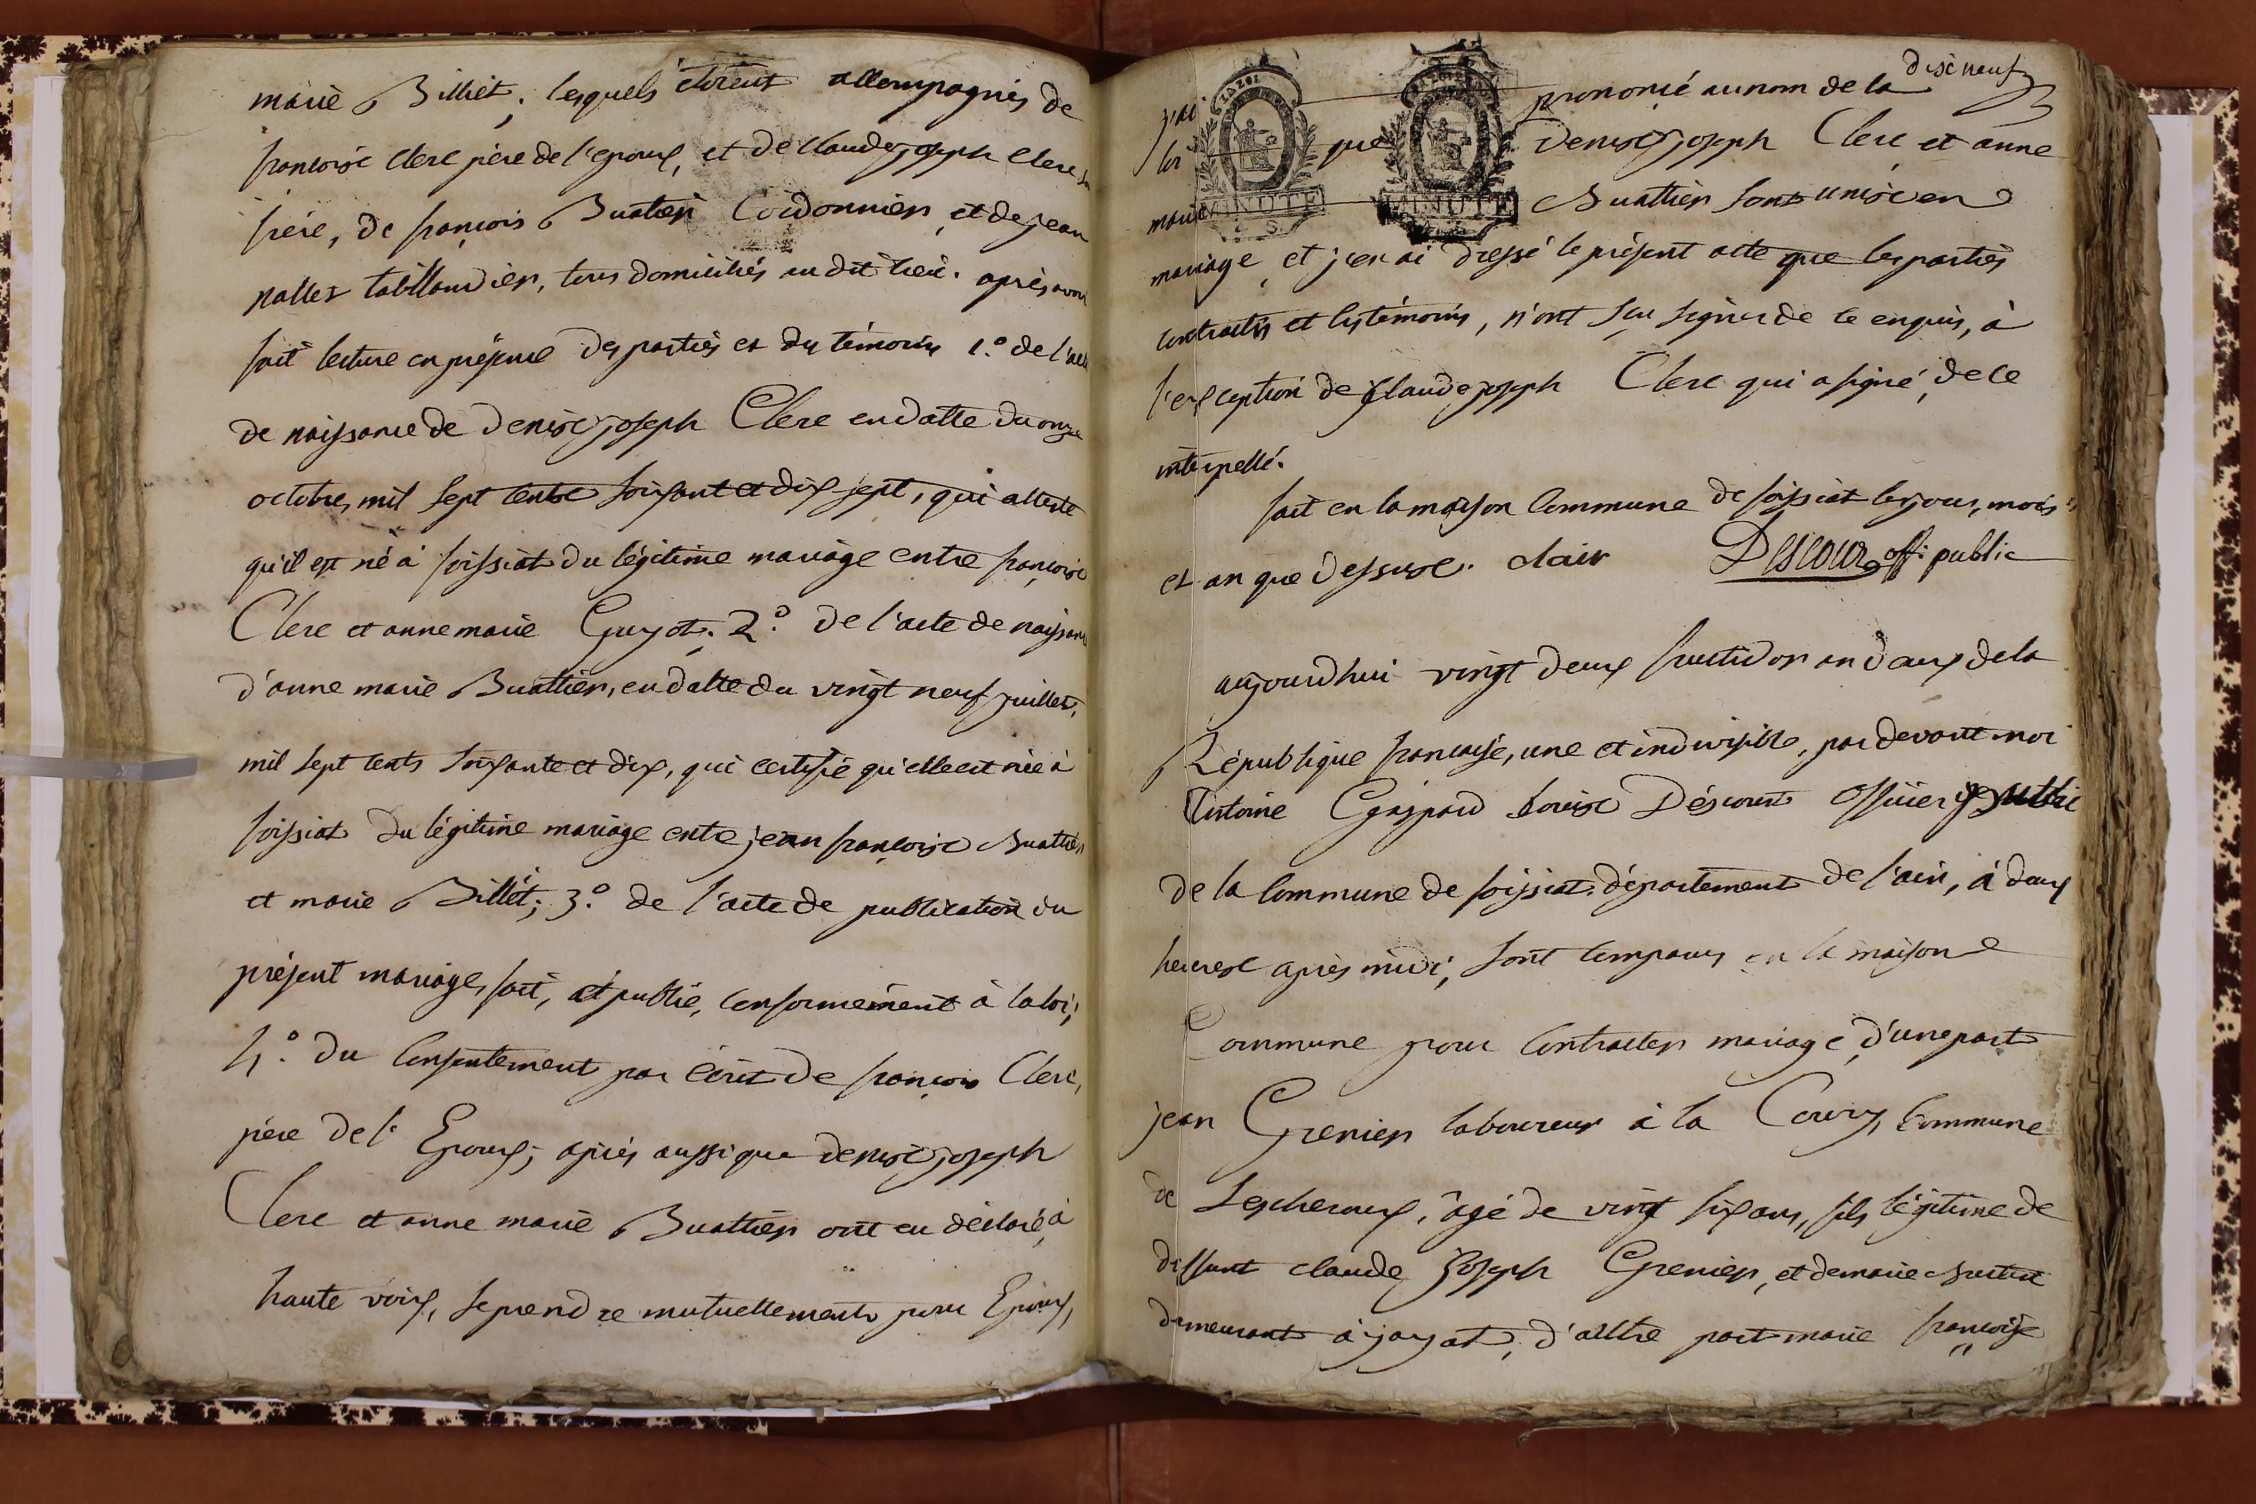 marie Billiet, lesquels étoient accompagnés de
françois Clerc père de l'epoux, et de Claude joseph Clerc son
frère, de françois Buatier Cordonnier, et de jean
nallet tabillandier, tous domiciliés au dit lieu. après avoir
fait lecture en présence des parties et des témoins 1.º de l'acte
de naissance de denis joseph Clerc en datte du onze
octobre, mil sept cents soixante et dix sept, qui atteste
qu'il est né à foissiat du légitime mariage entre françois
Clerc et anne marie Guyot. 2.º de l'acte de naissance
d'anne marie Buattier, en datte du vingt neuf juillet,
mil sept cents soixante et dix, qui certifie qu'elle est née à
foissiat du légitime mariage entre jean françois Buattier
et marie Billét; 3.º de l'acte de publication du
présent mariage, fait, et publié, conformément à la loi;
4.º du consentement par écrit de françois Clerc,
père de l'Epoux; après aussi que denis joseph
Clerc et anne marie Buattier ont eu déclaré, à
haute voix, se prendre mutuellement pour Epoux,
dix neuf
j'ai prononcé au nom de la
loi que denis joseph Clerc et anne
marie Buattier sont unis en
MINUTE
MINUTE
mariage, et j'en ai dressé le présent acte que les parties
contractés et les témoins, n'ont sçu signer de ce enquis, à
l'exception de Claude joseph Clerc qui a signé, de ce
intérpellé.
fait en la maison Commune de foissiat les jour, mois
et an que dessus. clair Déscour off. public
aujourdhui vingt deux fructidor an deux de la
République française, une et indivisible, par devant moi
Antoine Gaspard Louis Déscourt Officier public
de la Commune de foissiat département de l'ain, à deux
heures après midi, sont comparus en la maison
Commune pour Contracter mariage, d'une part
jean Grenier laboureur à la Coury, Commune
de Lescheroux, âgé de vingt six ans, fils légitime de
deffunt claude Joseph Grenier, et de marie
demeurant à jayat, d'autre part marie françoise